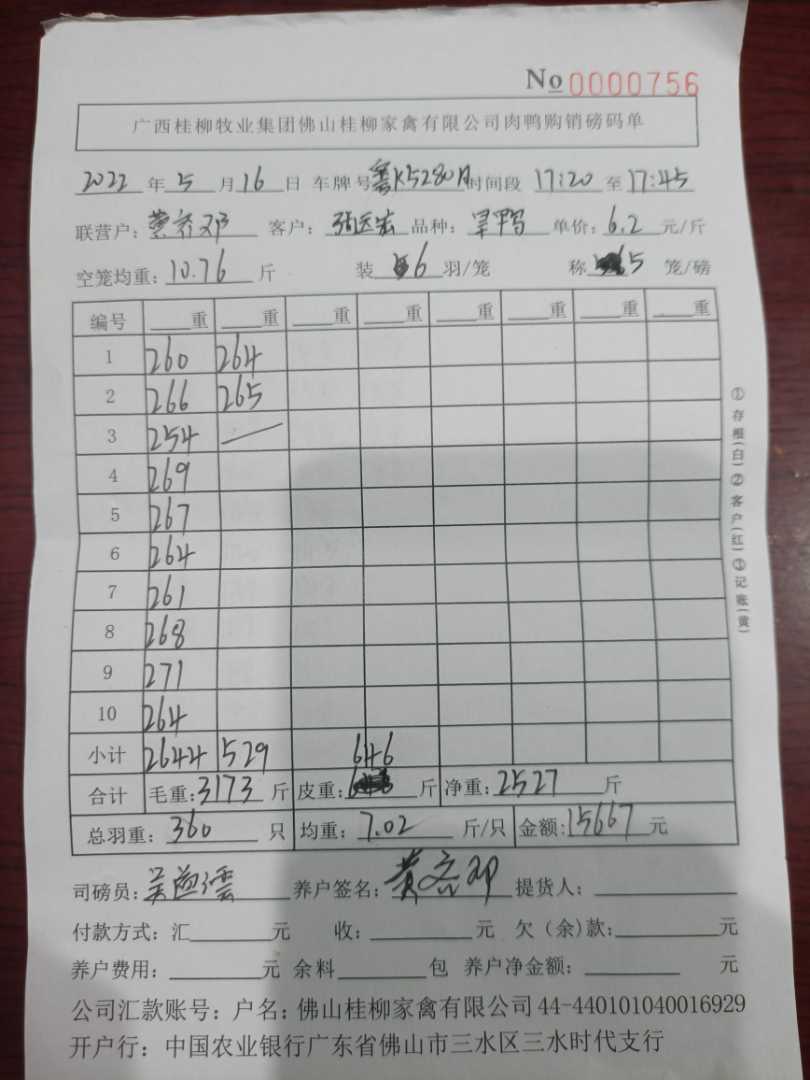 No 0000756
广西桂柳牧业集团佛山桂柳家禽有限公司肉鸭购销磅码单
2022年5月16日 车牌号粤K5280A时间段 17:20至17:45
联营户: 黄容邓 客户: 品种: 旱鸭 单价: 6.2元/斤
空笼均重: 10.76斤 装6羽/笼 称5笼/磅
编号 重 重 重 重 重 重 重 重
1 260 264
2 266 265
3 254 —
4 269
5 267
6 264
7 261
8 268
9 271
10 264
小计 2644 529 646
合计 毛重: 3173斤 皮重: 斤 净重: 2527斤
总羽重: 360只 均重: 7.02斤/只 金额: 15667元
司磅员: 吴 养户签名: 黄容邓 提货人:
付款方式: 汇 元 收: 元 欠(余)款: 元
养户费用: 元 余料 包 养户净金额: 元
公司汇款账号: 户名: 佛山桂柳家禽有限公司 44-440101040016929
开户行: 中国农业银行广东省佛山市三水区三水时代支行
①存根(白)②客户(红)③记账(黄)